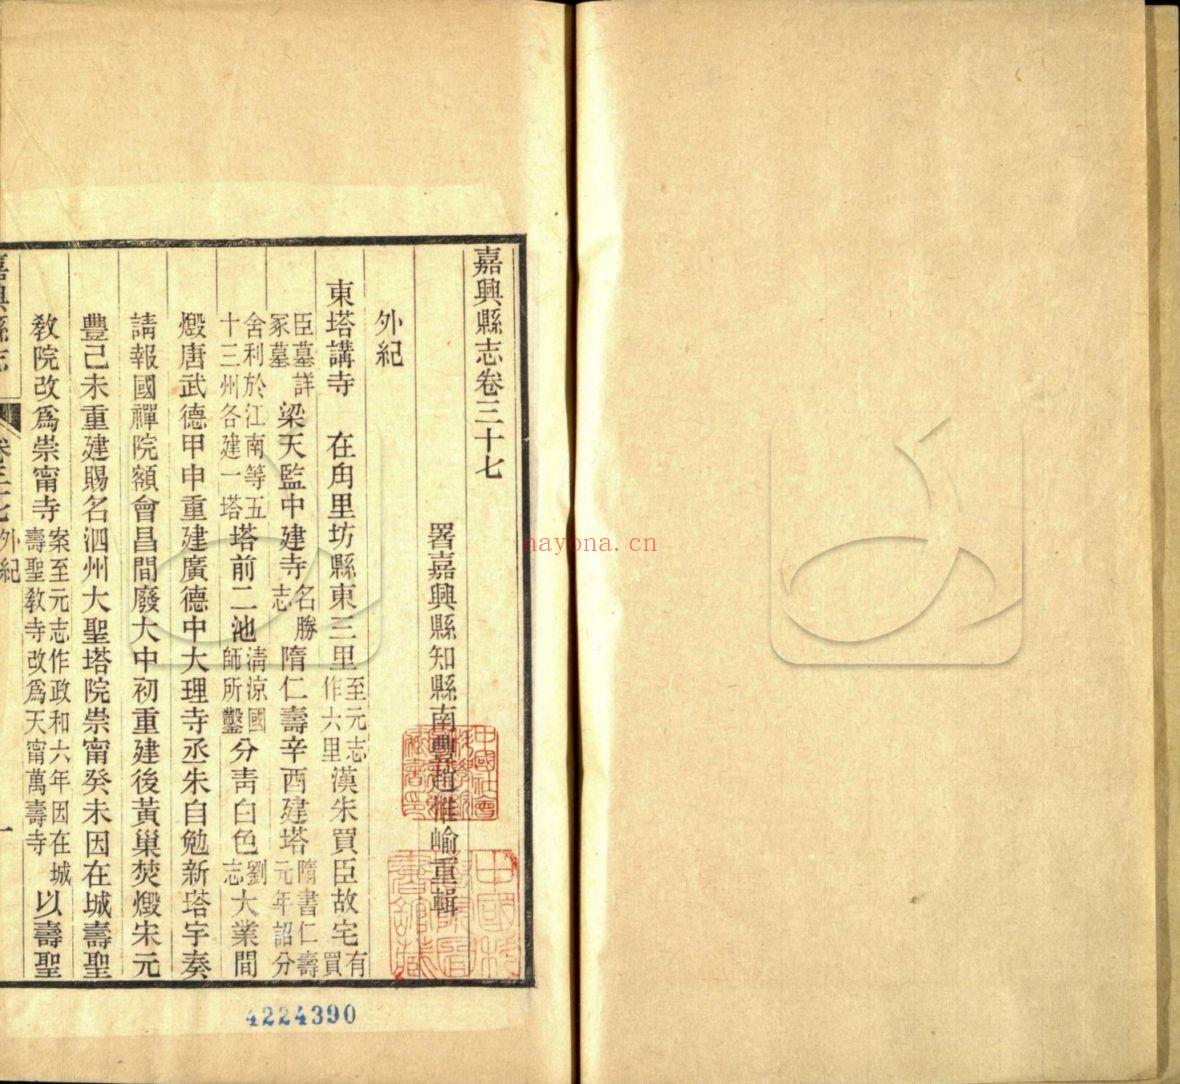 嘉興縣志卷三十七
署嘉興縣知縣南豐趙惟崳重輯
外紀
東塔講寺　在甪里坊縣東三里至元志作六里漢朱買臣故宅有買
臣墓詳冢墓梁天監中建寺名勝志隋仁壽辛酉建塔隋書仁壽元年詔分
舍利於江南等五十三州各建一塔塔前二池清涼國師所鑿分青白色劉志大業間
燬唐武德甲申重建廣德中大理寺丞朱自勉新塔宇奏
請報國禪院額會昌間廢大中初重建後黃巢焚燬宋元
豐己未重建賜名泗州大聖塔院崇甯癸未因在城壽聖
教院改爲崇甯寺案至元志作政和六年因在城壽聖教寺改爲天甯萬壽寺以壽聖
嘉興縣志
卷三十七
外紀
一
4224390
nayona.cn